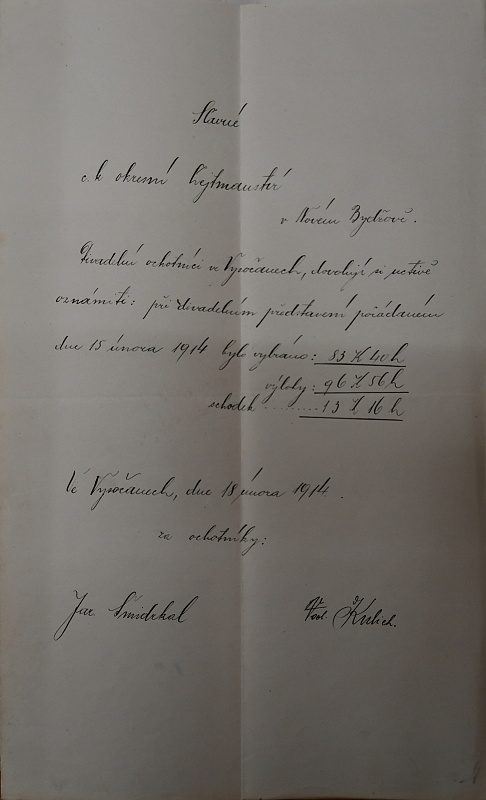 Slavné
c. k. okresní hejtmanství
v Novém Bydžově.
Divadelní ochotníci ve Vysočanech, dovolují si uctivě
oznámiti: při divadelním představení pořádaném
dne 15 února 1914 bylo vybráno: 83 K 40 h
výlohy: 96 K 56 h
schodek ......... 13 K 16 h
Ve Vysočanech, dne 18 února 1914.
za ochotníky:
Jar. Smidrkal
Kulich.